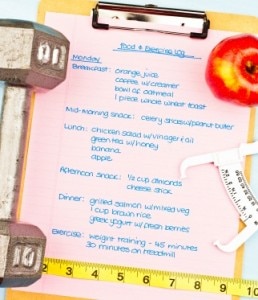 Food & Exercise Log
Monday
Breakfast: orange juice
coffee w/creamer
bowl of oatmeal
1 piece whole wheat toast
Mid-Morning Snack: celery sticks w/peanut butter
Lunch: chicken salad w/vinegar & oil
green tea w/ honey
banana
apple
Afternoon Snack: 1/2 cup almonds
cheese stick
Dinner: grilled salmon w/mixed veg
1 cup brown rice
greek yogurt w/fresh berries
Exercise: weight training - 45 minutes
30 minutes on treadmill
10
10
1 2 3 4 5 6 7 8 9 10